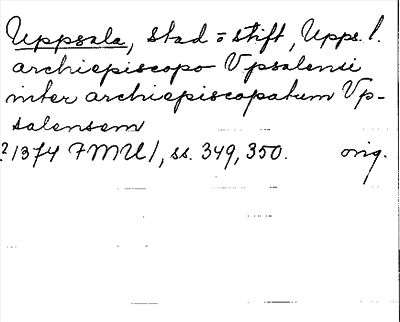 Uppsala, stad o stift, Upps. l.
archiepiscopo Vpsalensi
inter archiepiscopatum Vp-
salensem
?1374 FMU 1, ss. 349, 350. orig.